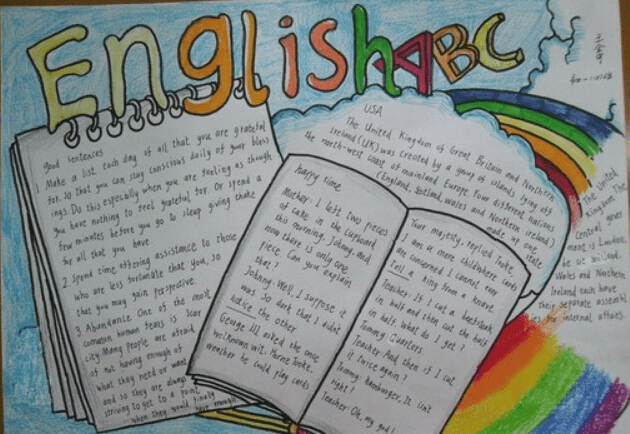 English ABC
good sentences
1 Make a list each day of all that you are grateful
for. so that you can stay conscious daily of your bless
ings. Do this especially when you are feeling as though
you have nothing to feel grateful for. Or spend a
few minutes before you go to sleep giving thanks
for all that you have.
2. Spend time offering assistance to those
who are less fortunate than you, so
that you may gain perspective.
3. Abundance One of the most
common human fears is scar
city. Many people are afraid
of not having enough of
what they need or want
and so they are always
striving to get to a point
when they would finally
have enough
USA
The United Kingdom of Great Britain and Northern
Ireland (UK) was created by a group of islands lying off
the north-west coast of mainland Europe. Four different nations
(England, Scotland, wales and Northern ireland)
made up one
state
happy time
Mother: I left two pieces
of cake in the cupboard
this morning, Johnny, and
now there is only one
piece. Can you explain
that?
Johnny: Well, I suppose it
was so dark that I didn't
notice the other
George III asked the once
wellknown wit, Horne Tooke,
weather he could play cards
Your majesty, replied Tooke,
I am a mere child where cards
are concerned I cannot even
tell a king from a knave
Teacher: If I cut a beefsteak
in half and then cut the half
in half, what do I get?
Tommy: Quarters.
Teacher: And then if I cut
it twice again?
Tommy: Hamburger. It isn't
right?
Teacher: Oh, my god!
The United
Kingdom The
Central gover
ment is London,
Wales and Northern
Ireland each have
their separate assembl
ies for internal affairs.